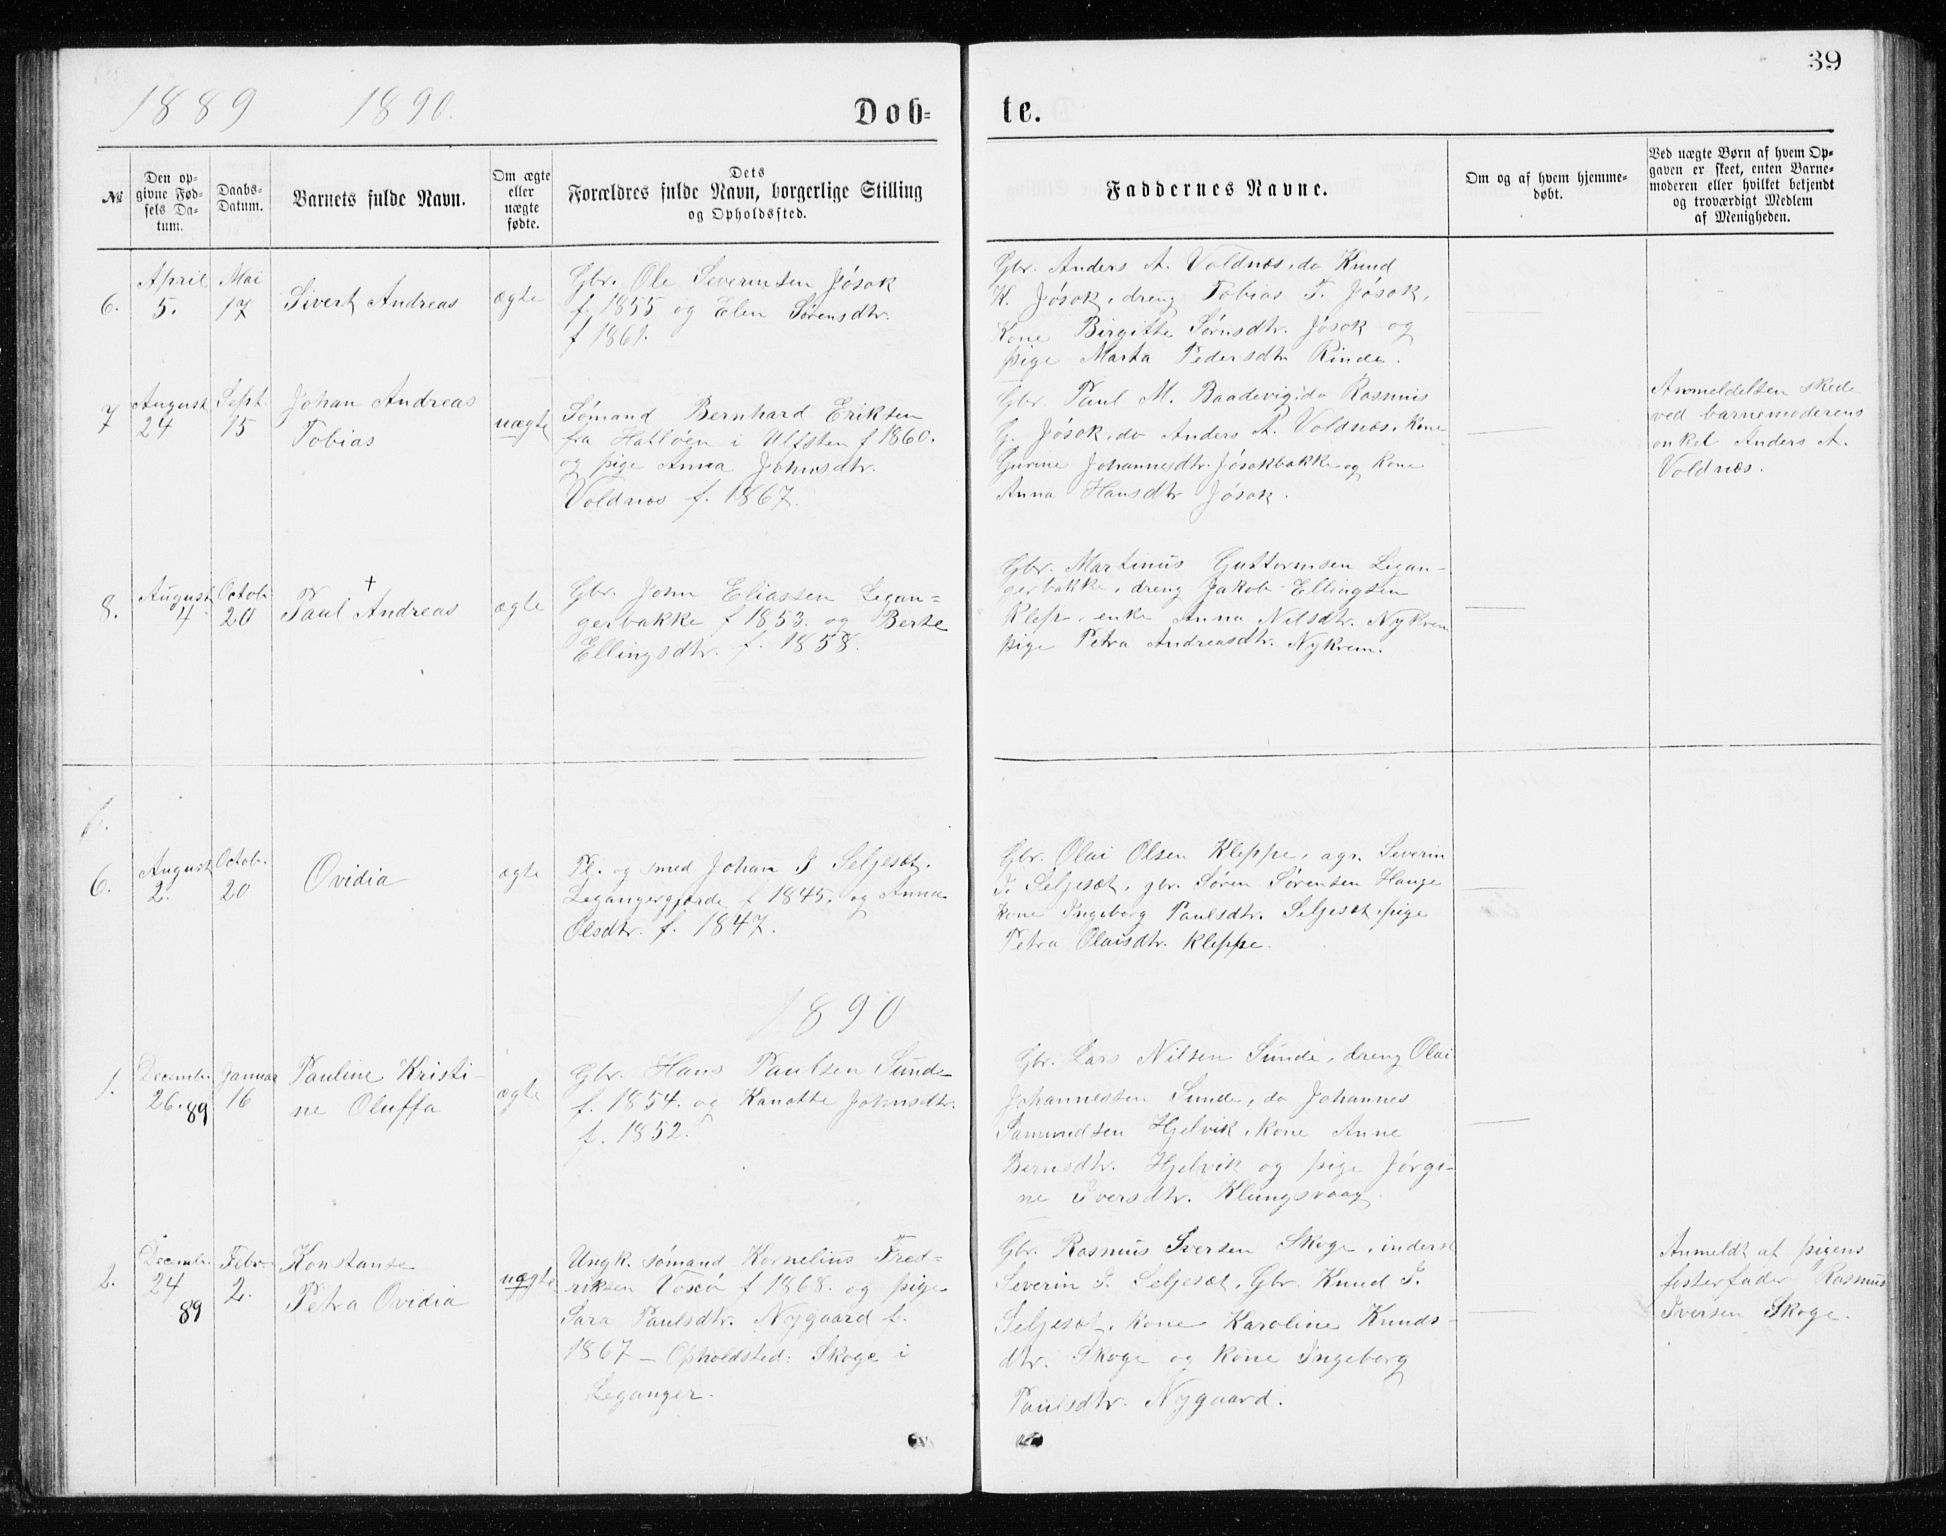 39
1889 1890.
Døb= te.
№
Den op-
givne Fød-
sels Da-
tum.
Daabs-
Datum.
Barnets fulde Navn.
Om ægte
eller
uægte
fødte.
Dets
Forældres fulde Navn, borgerlige Stilling
og Opholdssted.
Faddernes Navne.
Om og af hvem hjemme-
døbt.
Ved uægte Børn af hvem Op-
gaven er skeet, enten Barne-
moderen eller hvilket bekjendt
og troværdigt Medlem
af Menigheden.
6.
April
5.
Mai
17
Sivert Andreas
ægte
Gbr. Ole Severinsen Jøsok
f. 1855 og Elen Sørensdtr.
f 1861.
Gbr. Anders A. Voldnæs, do Knud
K. Jøsok, dreng Tobias T. Jøsok,
Kone Birgitte Sørnsdtr. Jøsok og
pige Marta Pedersdtr Rinde.
7
August
24
Sept.
15
Johan Andreas
Tobias
uægte
Sømand Bernhard Eriksen
fra Hatløen i Ulfsten f 1860.
og pige Anna Johnsdtr.
Voldnæs f. 1867.
Gbr. Paul M. Baadevig, do Rasmus
G. Jøsok, do Anders A. Voldnæs, Kone
Gurine Johannesdtr. Jøsokbakke og Kone
Anna Hansdtr Jøsok.
Anmeldelsen skede
ved barnemoderens
onkel Anders A.
Voldnæs.
8.
August
4
Octob.
20
+
Paul Andreas
ægte
Gbr. John Eliassen Legan=
gerbakke f 1853. og Berte
Ellingsdtr. f. 1858.
Gbr. Martinus Guttormsen Legan-
gerbakke, dreng Jakob Ellingsen
Klep, enke Anna Nilsdtr. Nykrem
pige Petra Andreasdtr. Nykrem.
6.
August
2.
Octob.
20
Ovidia
ægte
Pl. og smed Johan I Seljesæt.
Legangergjærde f 1845. og Anna
Olsdtr. f. 1847.
Gbr. Olai Olsen Kleppe, agr. Severin
I. Seljesæt, gbr. Søren Sørensen Hauge
Kone Ingeborg Paulsdtr. Seljesæt, pige
Petra Olaisdtr. Kleppe.
1890
1.
Decembr.
26. 89
Januar
16
Pauline Kristi-
ne Oluffa
ægte
Gbr. Hans Paulsen Sunde
f. 1854. og Kanutte Johnsdtr.
f. 1852.
Gbr. Lars Nilsen Sunde, dreng Olai
Johannessen Sunde, do Johannes
Samundsen Hjelvik, Kone Anne
Berntsdtr. Hjelvik og pige Jørgi-
ne Iversdtr. Klungsvaag.
2.
Decembr.
24
89
Febr.
2.
Konstanse
Petra Ovidia
uægte
Ungk. sømand Kornelius Fred-
riksen Vosø f 1868. og pige
Sara Paulsdtr. Nygaard f.
1867 – Opholdsted: Skoge i
Leganger.
Gbr. Rasmus Iversen Skoge, inderst
Severin I. Seljesæt, Gbr. Knud I.
Seljesæt, Kone Karoline Knuds-
dtr. Skoge og Kone Ingeborg
Paulsdtr. Nygaard.
Anmeldt af pigens
fosterfader Rasmus
Iversen Skoge.